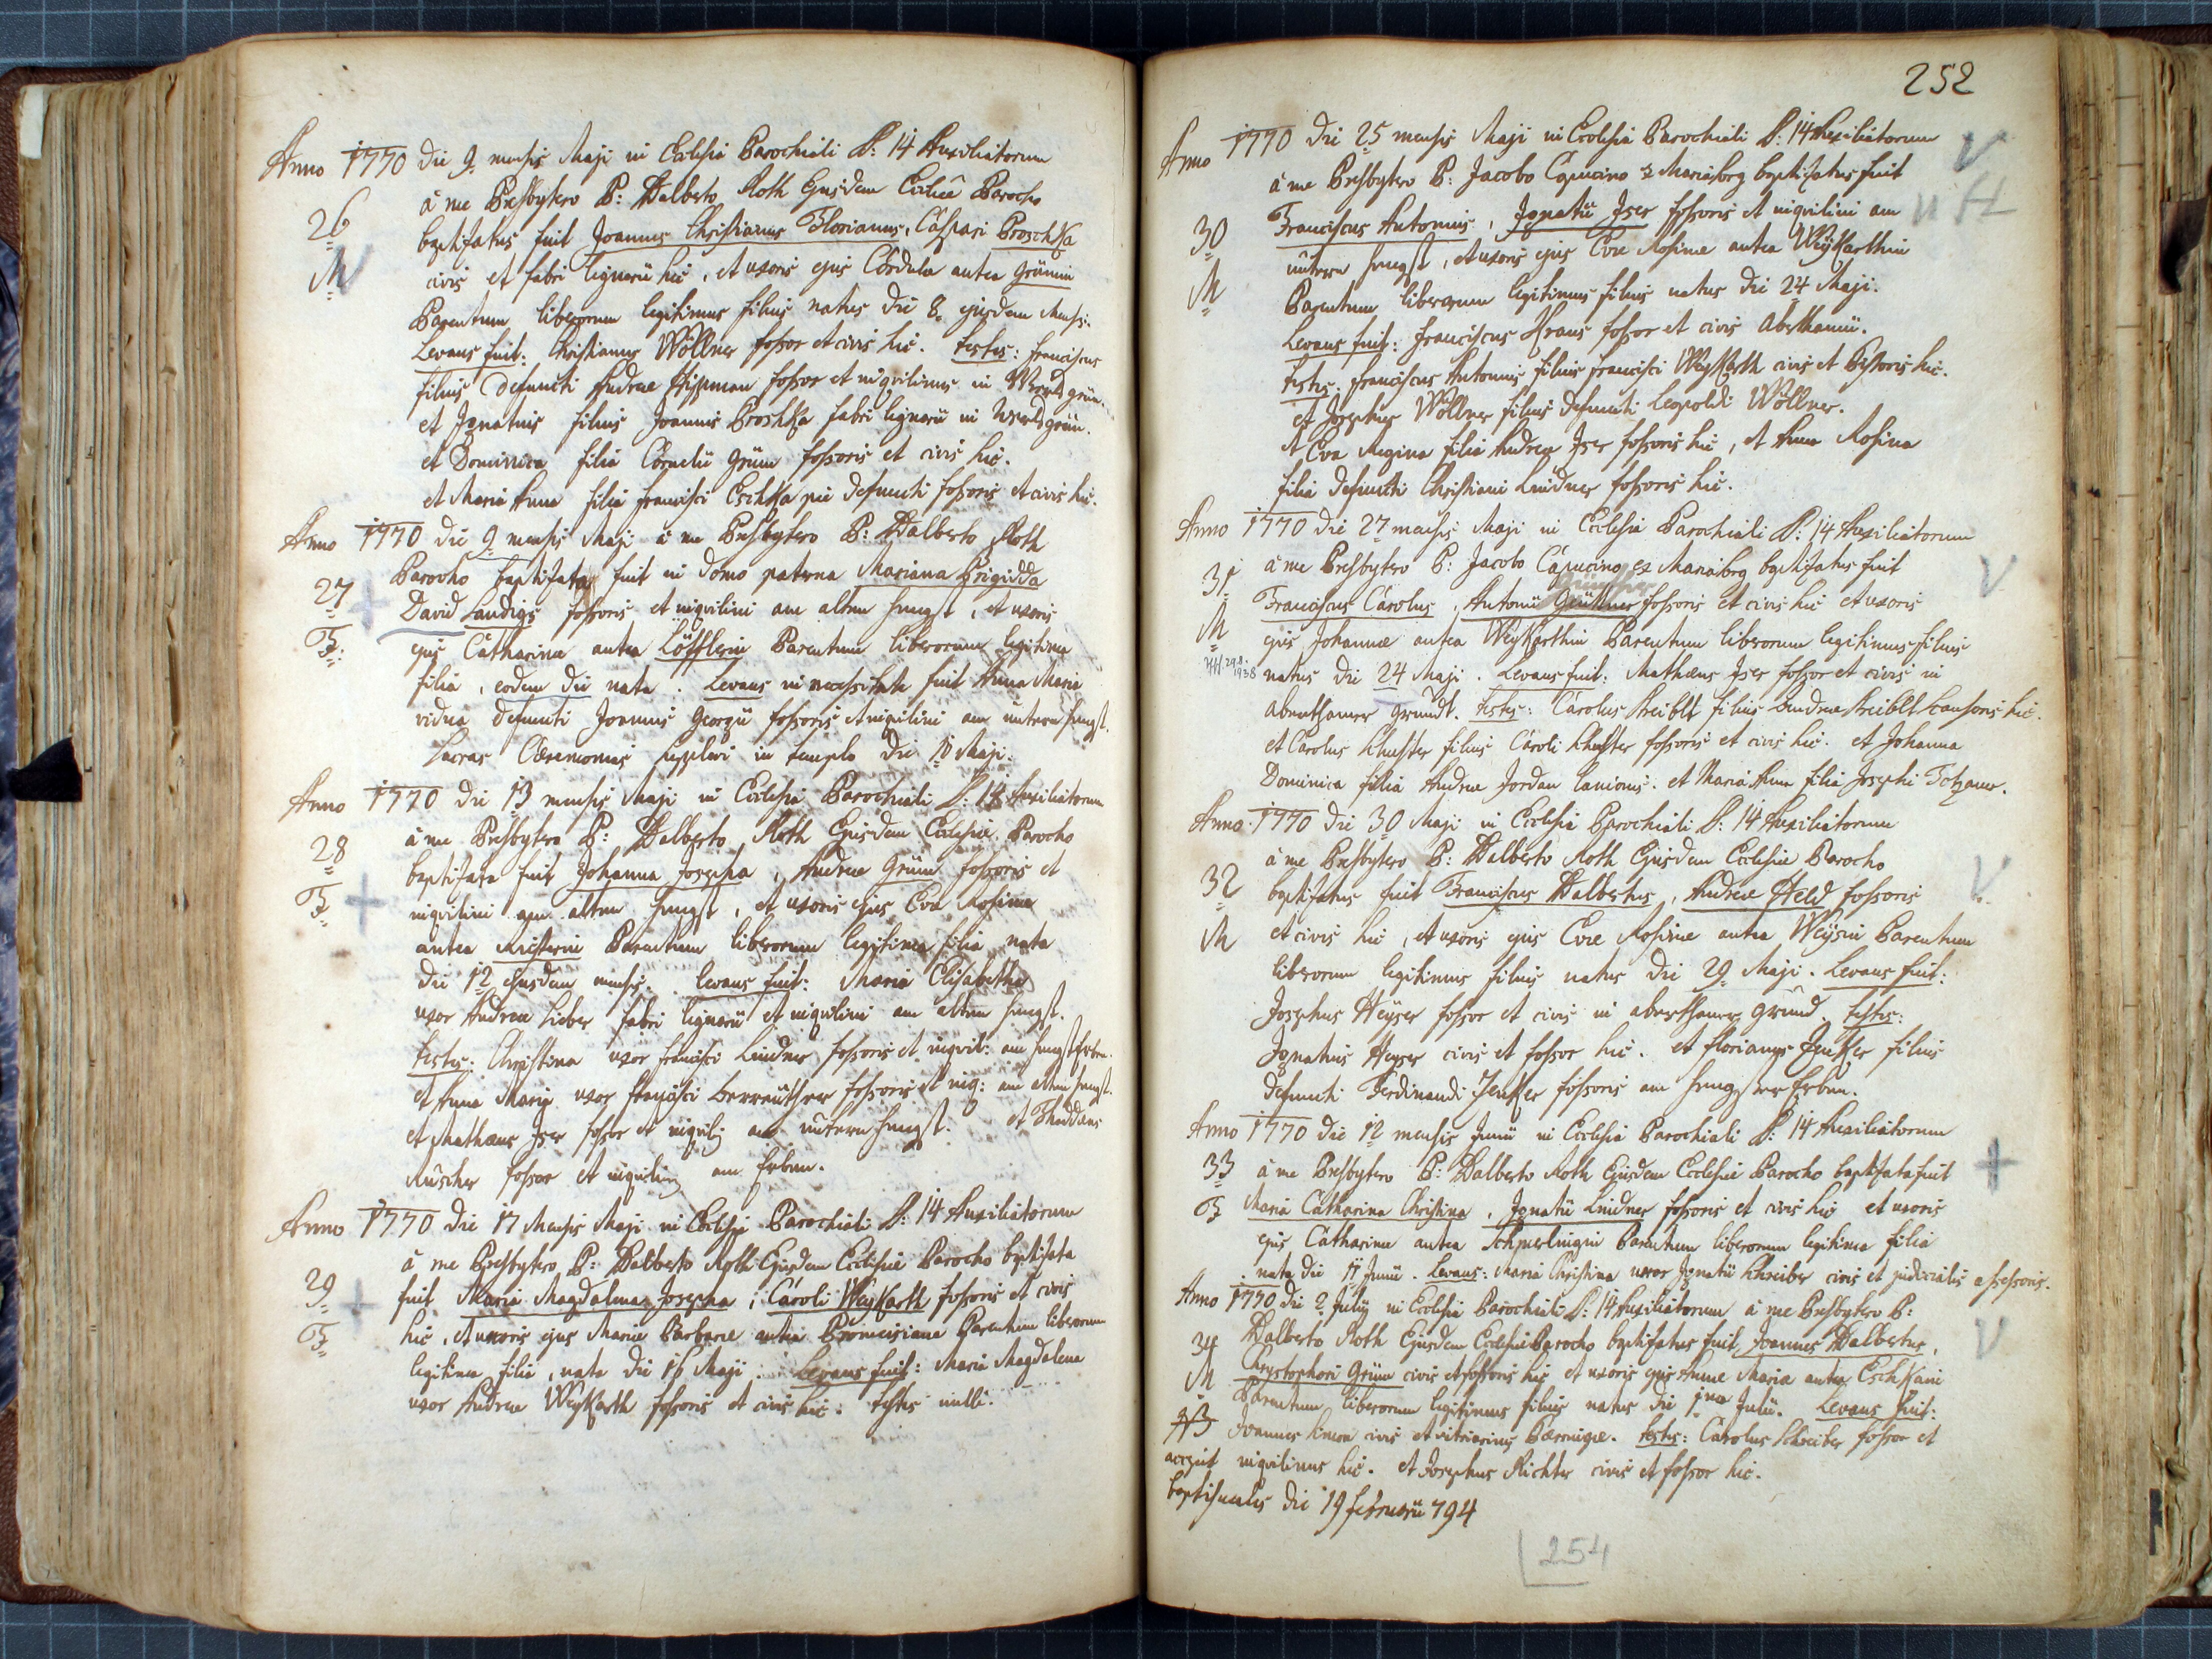 Anno 1770 die 9. mensis Maji in Ecclesia Parochiali S: 14 Auxiliatorum
à me Presbytero P: Dalberto Roth Ejusdem Ecclesiæ Parocho
26
baptisatus fuit Joannes Christianus Florianus, Caspari Broschka
M
civis et fabri lignarii hic, et uxoris ejus Cordulæ antea Grünin
Parentum liberorum legitimus filius natus die 8. ejusdem Mensis.
Levans fuit: Christianus Wöllner fossor et civis hic. Testes: Franciscus
filius defuncti Andreæ fossor et inqvilinus in
et Ignatius filius Joannis Broshka fabri lignarii in
et Dominica filia Cornelii Grün fossoris et civis hic.
et Maria Anna filia Francisci Eschka pie defuncti fossoris et civis hic.
Anno 1770 die 9 mensis Maji à me Presbytero P: Dalberto Roth
27
Parocho baptisata fuit in domo paterna Mariana Brigidda
F:
David Landigs fossoris et inqvilini am alten Hengst, et uxoris
ejus Catharinæ antea Löfflerin Parentum liberorum legitima
filia, eodem die nata. Levans in necessitate fuit Anna Maria
vidua defuncti Joannis Georgii fossoris et inqvilini am untern Hengst.
Sacras Cæremonias supplevi in templo die 10 Maji.
Anno 1770 die 13 mensis Maji in Ecclesia Parochiali S: 14 Auxiliatorum
28
à me Presbytero P: Dalberto Roth Ejusdem Ecclesiæ Parocho
F.
baptisata fuit Johanna Josepha, Andreæ Grün fossoris et
inqvilini am alten Hengst, et uxoris ejus Evæ Rosinæ
antea Parentum liberorum legitima filia nata
die 12 ejusdem mensis. Levans fuit: Maria Elisabetha
uxor Andreæ Lieber fabri lignarii et inqvilini am alten Hengst.
Testes: Christina uxor Francisci Lindner fossoris et inqvil: am Hengst Erben.
et Anna Maria uxor Francisci fossoris et inq: am alten Hengst.
et Mathæus Iser fossor et inqvilin am untern Hengst. et Thaddæus
Rüscher fossor et inqvilin am Erben.
Anno 1770 die 17 Mensis Maji in Ecclesia Parochiali S: 14 Auxiliatorum
à me Presbytero P: Dalberto Roth Ejusdem Ecclesiæ Parocho baptisata
29
fuit Maria Magdalena Josepha, Caroli Weykarth fossoris et civis
F.
hic, et uxoris ejus Mariæ Barbaræ antea Parentum liberorum
legitima filia, nata die 16 Maji. Levans fuit: Maria Magdalena
uxor Andreæ Weykarth fossoris et civis hic. Testes nulli.
252
Anno 1770 die 25 mensis Maji in Ecclesia Parochiali S: 14 Auxiliatorum
V
à me Presbytero P: Jacobo Capucino ex Mariasorg baptisatus fuit
30
Franciscus Antonius, Ignatii Iser fossoris et inqvilini am
M
untern Hengst, et uxoris ejus Evæ Rosinæ antea Weykarthin
Parentum liberorum legitimus filius natus die 24 Maji.
Levans fuit: Franciscus Kraus fossor et civis Aberthamii.
Testes: Franciscus Antonius filius Francisci Weykarth civis et Pistoris hic.
et Josephus Wöllner filius defuncti Leopoldi Wöllner.
et Eva Regina filia Andreæ Iser fossoris hic, et Anna Rosina
filia defuncti Christiani Lindner fossoris hic.
Anno 1770 die 27 mensis Maji in Ecclesia Parochiali S: 14 Auxiliatorum
31
à me Presbytero P: Jacobo Capucino ex Mariasorg baptisatus fuit
V
Günther
Franciscus Carolus, Antonii Günther fossoris et civis hic et uxoris
M
ejus Johannæ antea Weykarthin Parentum liberorum legitimus filius
29.8. 1938
natus die 24 Maji. Levans fuit: Mathæus Iser fossor et civis in
Aberthamer Grundt. Testes: Carolus filius Andreæ hic.
et Carolus filius Caroli fossoris et civis hic. et Johanna
Dominica filia Andreæ Jordan lanionis. et Maria Anna filia Josephi Totzauer.
Anno 1770 die 30 Maji in Ecclesia Parochiali S: 14 Auxiliatorum
à me Presbytero P: Dalberto Roth Ejusdem Ecclesiæ Parocho
32
baptisatus fuit Franciscus Dalbertus, Andreæ Held fossoris
V
M
et civis hic, et uxoris ejus Evæ Rosinæ antea Weysin Parentum
liberorum legitimus filius natus die 29 Maji. Levans fuit:
Josephus Heyser fossor et civis in Aberthamer Grund. Testes:
Ignatius Heyser civis et fossor hic. et Florianus Zenker filius
defuncti Ferdinandi Zenker fossoris am Hengster Erben.
Anno 1770 die 12 mensis Junii in Ecclesia Parochiali S: 14 Auxiliatorum
33
à me Presbytero P: Dalberto Roth Ejusdem Ecclesiæ Parocho baptisata fuit
F
Maria Catharina Christina, Ignatii Lindner fossoris et civis hic et uxoris
ejus Catharinæ antea Parentum liberorum legitima filia
nata die 11 Junii. Levans: Maria Christina uxor Ignatii Schreiber civis et judicialis assessoris.
Anno 1770 die 2. Julij in Ecclesia Parochiali S: 14 Auxiliatorum à me Presbytero P:
34
Dalberto Roth Ejusdem Ecclesiæ Parocho baptisatus fuit Joannes Dalbertus,
V
M
Chrystophori Grün civis et fossoris hic et uxoris ejus Annæ Mariæ antea Eschkain
Parentum liberorum legitimus filius natus die 1ma Julii. Levans fuit:
NB
Joannes civis et vitriarius Bærringæ. Testes: Carolus Schreiber fossor et
accepit
inqvilinus hic. et Josephus Richter civis et fossor hic.
baptismales die 19 Februarii 794
254